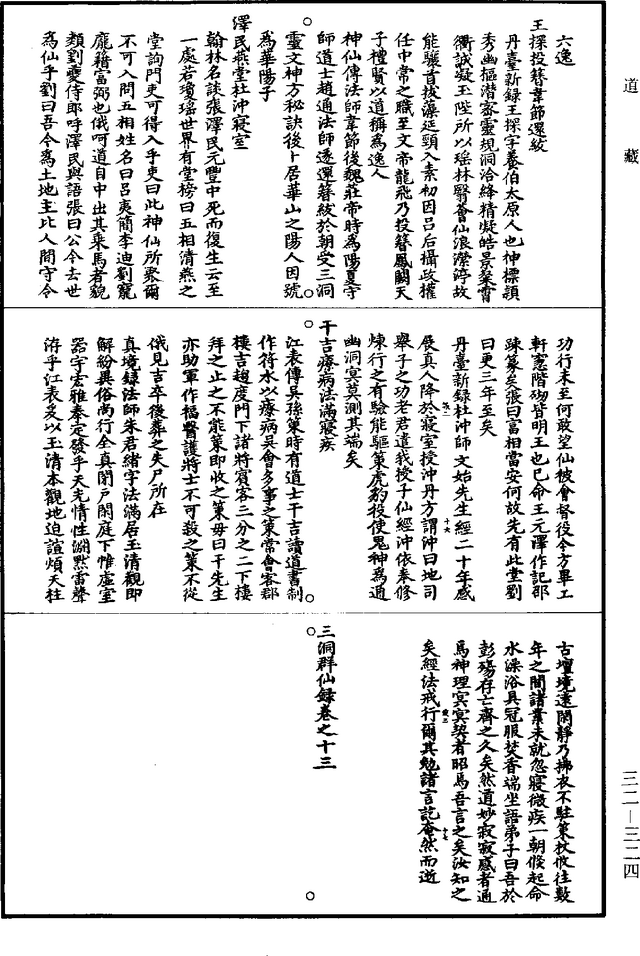 六逸
王探投簪韋節還紱
丹臺新録王探字養伯太原人也神標韻
秀幽樞潜審靈規洞洽絳精凝皓景粲霄
衢誠凝玉陛所以瑶林翳會仙浪潆渟故
能驤首拔藻延頸入素初因吕后攝政權
任中常之職至文帝龍飛乃投簪鳳闕天
子禮賢以道稱為逸人
神仙傳法師韋節後魏莊帝時為陽夏守
師道士趙通法師遂還簪紱於朝受三洞
靈文神方秘訣後卜居華山之陽人因號
為華陽子
澤民燕堂杜沖寢室
翰林名談張澤民元豐中死而復生云至
一處若瓊瑶世界有堂榜曰五相清燕之
堂詢門吏可得入乎吏曰此神仙所聚爾
不可入問五相姓名曰吕夷簡李迪劉寵
龐籍富弼也俄呵道自中出其乘馬者貌
類劉夔侍郎呼澤民與語張曰公今去世
為仙乎劉曰吾今為土地主比人間守令
功行未至何敢望仙被會督役今方畢工
軒憲階砌皆明王也已命王元澤作記邵
踈篆矣張曰富相當安何故先有此堂劉
曰更三年至矣
丹臺新録杜沖師文始先生經二十年感
展真人降於寢室授沖丹方謂沖曰地司
舉子之功老君遣我授子仙經沖依奉修
煉行之有驗能驅策虎豹役使鬼神為通
幽洞冥莫測其端矣
干吉療病法滿寢疾
江表傳吳孫策時有道士干吉讀道書制
作符水以療病吳會多事之策常會客郡
樓吉趍度門下諸將賓客三分之二下樓
拜之止之不能策即收之策毋曰干先生
亦助軍作福醫護將士不可殺之策不從
俄見吉卒後葬之失尸所在
真境録法師朱君緒字法滿居玉清觀即
解紛異俗尚行全真閉户閑庭下帷虛室
器宇宏雅泰定發乎天光情性淵黙雷聲
游乎江表爰以玉清本觀地迫諠煩天柱
古壇境遠閑靜乃拂衣不駐策杖攸往數
年之間諸業未就忽寢微疾一朝倐起命
水澡浴具冠服焚香端坐語弟子曰吾於
彭殤存亡齊之久矣然道妙寂寂感者通
焉神理冥冥契者昭焉吾言之矣汝知之
矣經法戒行爾其勉諸言訖奄然而逝
三洞群仙録卷之十三
道藏
三二—三二四